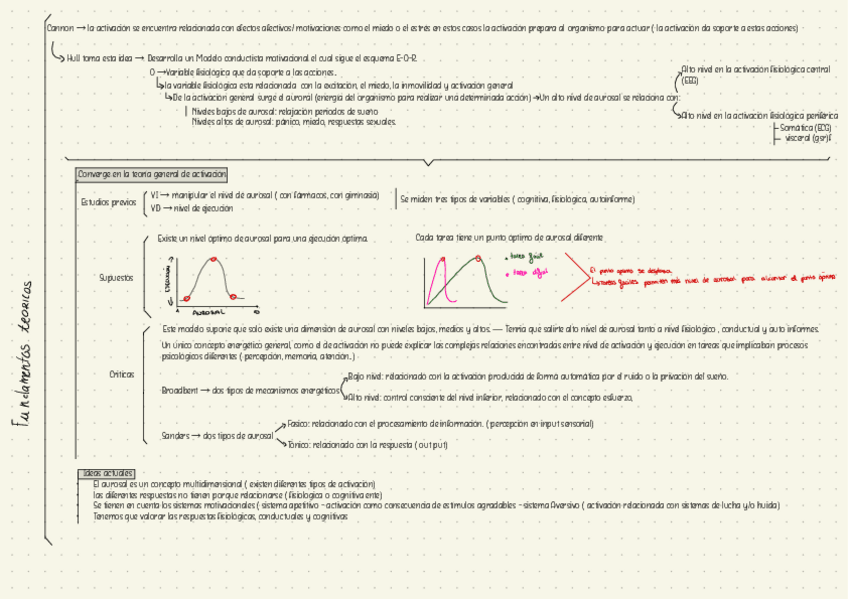 Cannon → la activación se encuentra relacionada con efectos afectivos/ motivaciones como el miedo o el estrés en estos casos la activación prepara al organismo para actuar ( la activación da soporte a estas acciones)
Hull toma esta idea → Desarrolla un Modelo conductista motivacional el cual sigue el esquema E-O-R.
O → Variable fisiológica que da soporte a las acciones.
la variable fisiológica esta relacionada con la excitación, el miedo, la inmovilidad y activación general
De la activación general surge el auroral (energía del organismo para realizar una determinada acción) → Un alto nivel de aurosal se relaciona con:
Alto nivel en la activación fisiológica central
(EEG)
Alto nivel en la activación fisiológica periférica
Somática (ECG)
visceral (gsr)f
Niveles bajos de aurosal: relajación periodos de sueño
Niveles altos de aurosal: pánico, miedo, respuestas sexuales.
Fundamentos teoricos
Converge en la teoría general de activación
Estudios previos
VI → manipular el nivel de aurosal ( con fármacos, con gimnasia)
VD → nivel de ejecución
Se miden tres tipos de variables ( cognitiva, fisiológica, autoinforme)
Supuestos
Existe un nivel óptimo de aurosal para una ejecución óptima.
Cada tarea tiene un punto óptimo de aurosal diferente
EJECUCIÓN
AUROSAL
tarea fácil
tarea difícil
El punto óptimo se desplaza.
tareas fáciles permiten más nivel de aurosal para alcanzar el punto óptimo
Críticas
Este modelo supone que solo existe una dimensión de aurosal con niveles bajos, medios y altos. — Tenría que salirte alto nivel de aurosal tanto a nivel fisiológico , conductual y auto informes.
Un único concepto energético general, como el de activación no puede explicar las complejas relaciones encontradas entre nivel de activación y ejecución en tareas que implicaban procesos
psicológicos diferentes ( percepción, memoria, atención..)
Broadbent → dos tipos de mecanismos energéticos
Bajo nivel: relacionado con la activación producida de forma automática por el ruido o la privación del sueño.
Alto nivel: control consciente del nivel inferior, relacionado con el concepto esfuerzo,
Sanders → dos tipos de aurosal
Fasico: relacionado con el procesamiento de información. ( percepción en input sensorial)
Tónico: relacionado con la respuesta ( output)
Ideas actuales
El aurosal es un concepto multidimensional ( existen diferentes tipos de activación)
las diferentes respuestas no tienen porque relacionarse ( fisiológica o cognitiva ente)
Se tienen en cuenta los sistemas motivacionales ( sistema apetitivo - activación como consecuencia de estímulos agradables - sistema Aversivo ( activación relacionada con sistemas de lucha y/o huida)
Tenemos que valorar las respuestas fisiológicas, conductuales y cognitivas